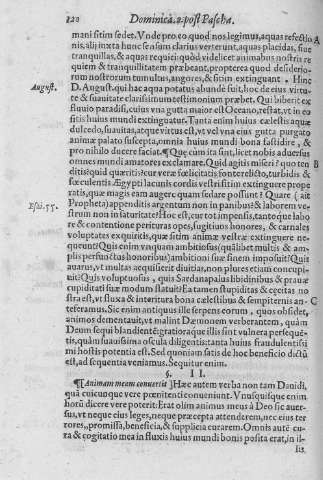 220 Dominica.2.post Pascha.
mani sitim sedet. Vnde pro eo quod nos legimus, aquas refectio A
nis, alij iuxta hunc sensum clarius verterunt, aquas placidas, siue
tranquillas, & aquas requiei: quòd videlicet animabus nostris re
quiem & tranquillitatem præbeant, propterea quod desiderio-
rum nostrorum tumultus, angores, & sitim extinguant. Hinc
August. D. August. qui hac aqua potatus abunde fuit, hoc de eius virtu-
te & suauitate clarissimum testimonium præbet. Qui biberit ex
fluuio paradisi, cuius vna gutta maior est Oceano, restat, vt in eo
sitis huius mundi extinguatur. Tanta enim huius cælestis aquæ
dulcedo, suauitas, atque virtus est, vt vel vna eius gutta purgato
animæ palato suscepta, omnia huius mundi bona fastidire, &
pro nihilo ducere faciat. ¶ Quæ cùm ita sint, licet nobis aduersus
omnes mundi amatores exclamare. Quid agitis miseri? quo ten B
ditis? quid quæritis? cur veræ fœlicitatis fonte relicto, turbidis &
fœculentis Ægypti lacunis cordis vestri sitim extinguere prope
ratis, quæ magis eam augere, quam sedare possunt? Quare (ait
Esai. 55. Propheta) appenditis argentum non in panibus? & laborem ve-
strum non in saturitate? Hoc est, cur tot impensis, tantoque labo
re & contentione perituras opes, fugitiuos honores, & carnales
voluptates exquiritis, quæ sitim animæ vestræ extinguere ne-
queunt? Quis enim vnquam ambitiosus (quâlibet multis & am-
plis perfunctus honoribus) ambitioni suæ finem imposuit? Quis
auarus, vt multas acquisierit diuitias, non plures etiam concupi-
uit? Quis voluptuosus, quis Sardanapalus libidinibus & prauæ
cupiditati suæ modum statuit? Ea tamen stupiditas & cæcitas no
stra est, vt fluxa & interitura bona cælestibus & sempiternis an- C
teferamus. Sic enim antiquus ille serpens eorum, quos obsidet,
animos dementauit, vt malint Dæmonem verberantem, quàm
Deum sequi blandientē: gratioraque illis sint vulnera persequē-
tis, quàm suauissima oscula diligentis: tanta huius fraudulentissi
mi hostis potentia est. Sed quoniam satis de hoc beneficio dictū
est, ad sequentia veniamus. Sequitur enim.
§. II.
¶ [Animam meam conuertit] Hæc autem verba non tam Dauidi,
quâ cuicunque vere pœnitenti conueniunt. Vnusquisque enim
horū dicere vere poterit: Erat olim animus meus à Deo sic auer-
sus, vt neque eius leges, neque præcepta attenderet, nec eius ter
rores, promissa, beneficia, & supplicia curarem. Omnis autē cu-
ra & cogitatio mea in fluxis huius mundi bonis posita erat, in il-
lis